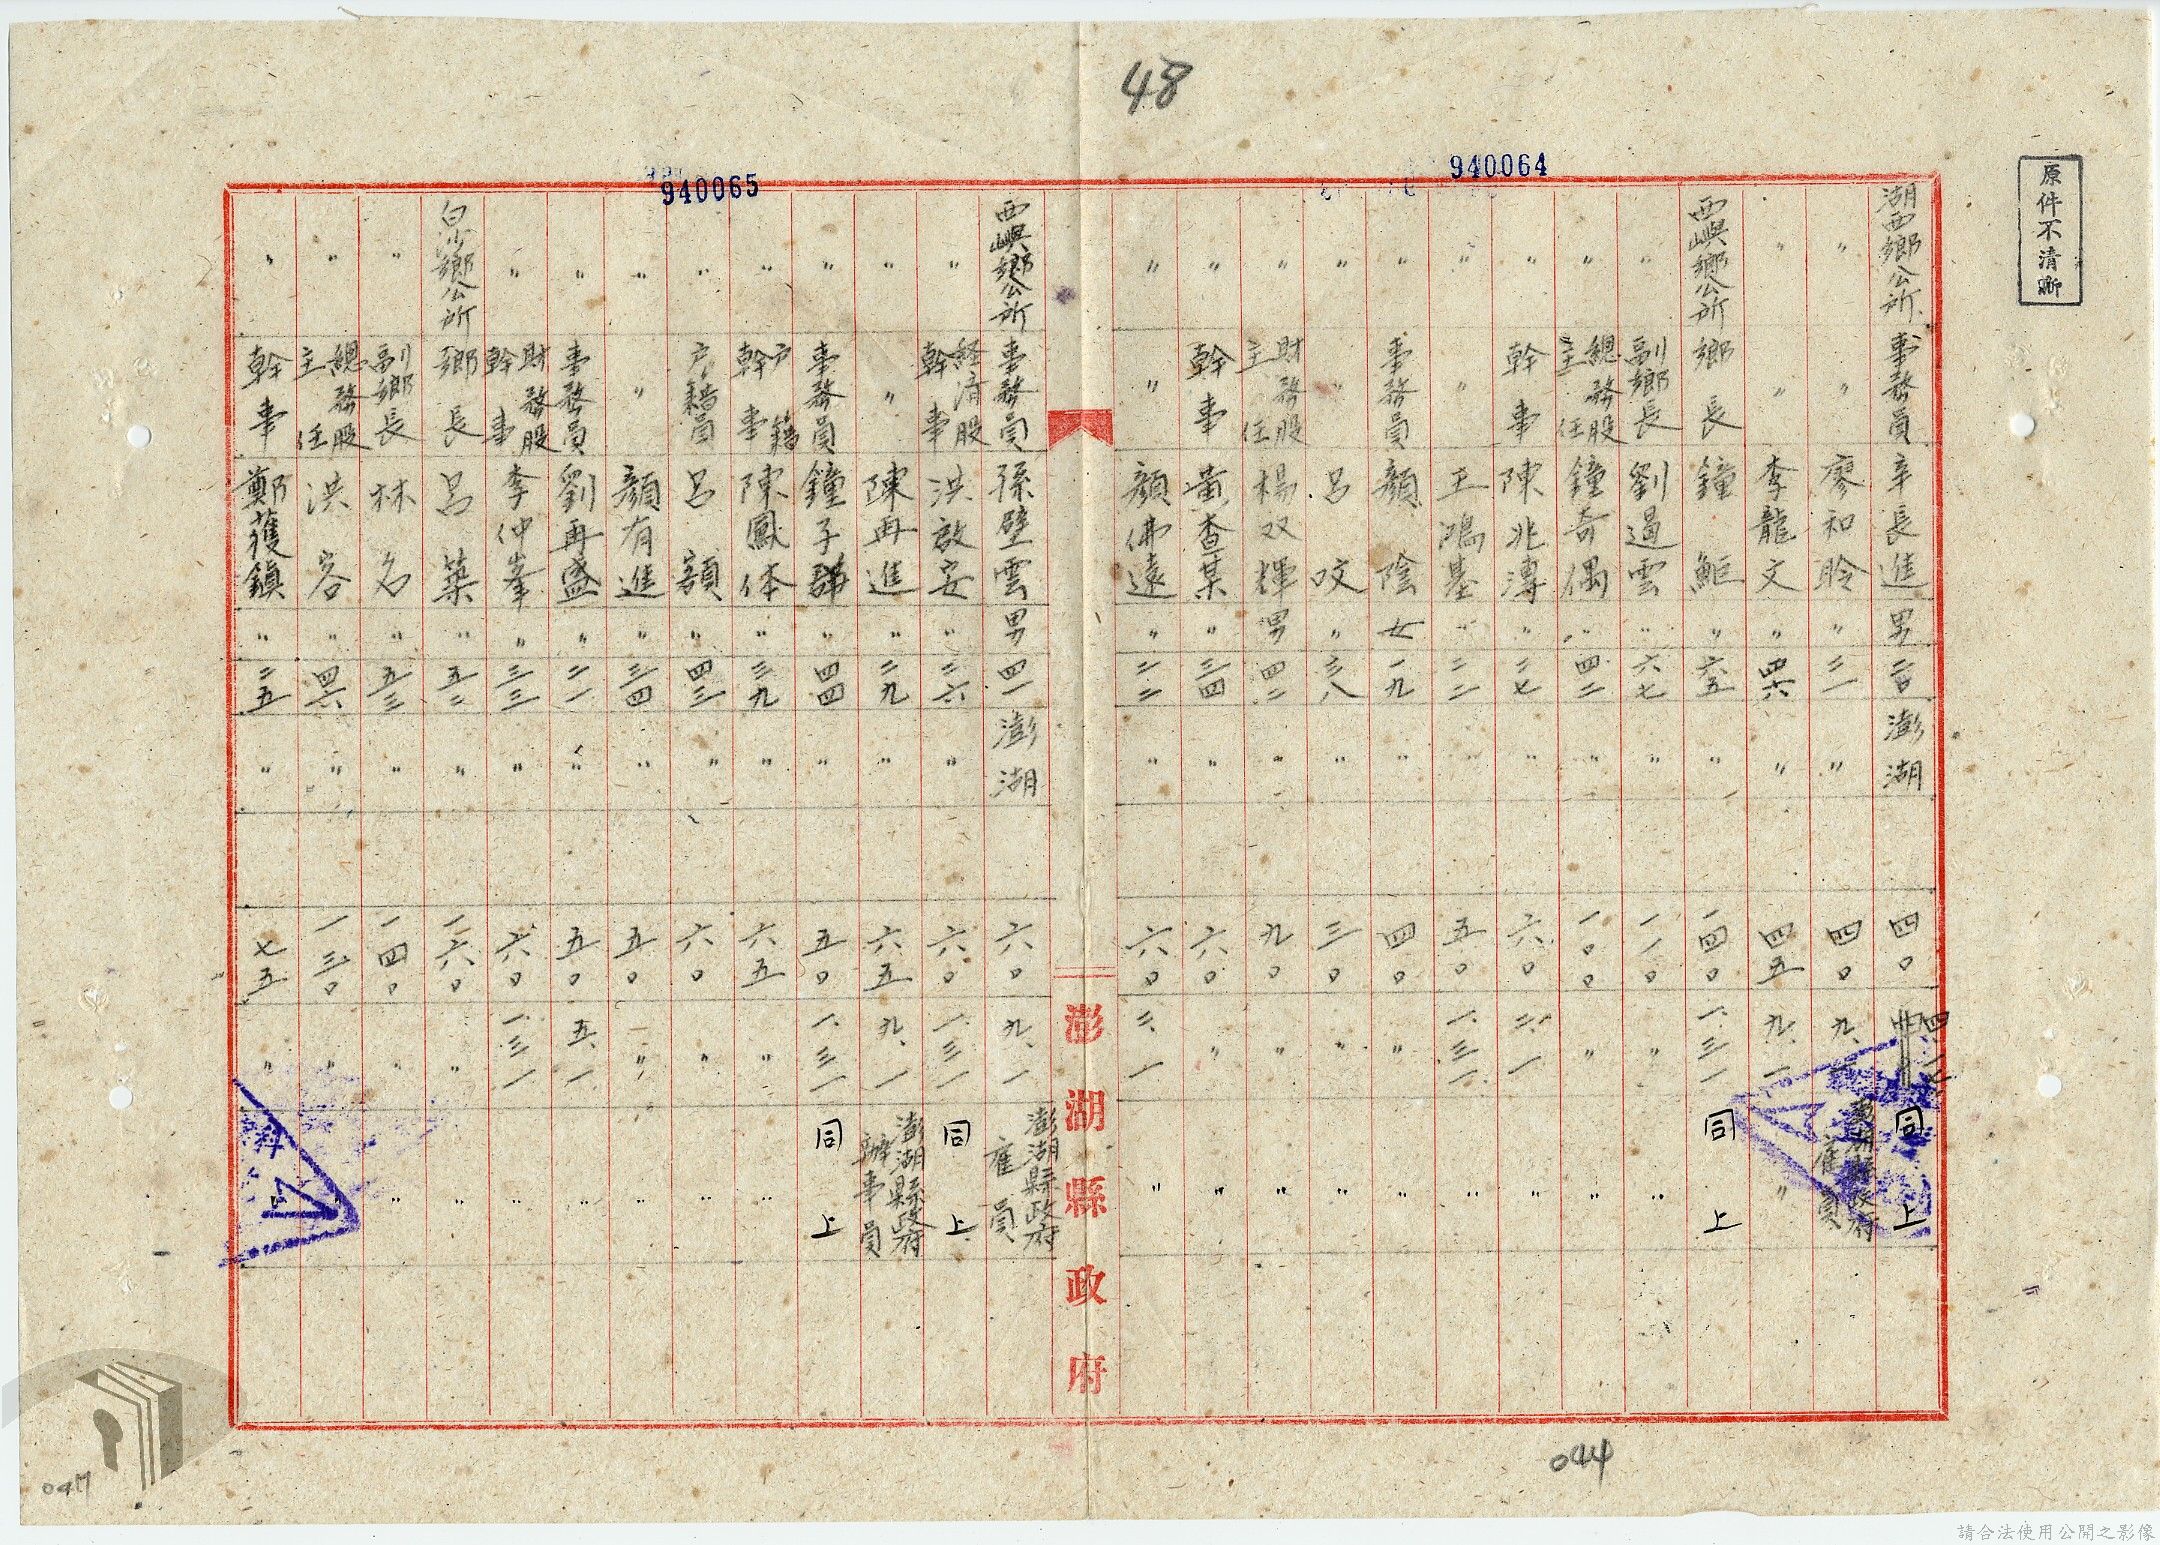 48
940064
940065
原件不清晰
湖西鄉公所 事務員 辛長進 男 澎湖 四〇 四、一七 同上
〃 〃 廖和聆 〃 三一 〃 四〇 九、一 澎湖縣政府雇員
〃 〃 李龍文 〃 四六 〃 四五 九、一 〃
西嶼鄉公所 鄉長 鐘鮔 〃 六五 〃 一四〇 一、三一 同上
〃 副鄉長 劉過雲 〃 六七 〃 一一〇 〃 〃
〃 總務股主任 鐘奇偶 〃 四二 〃 一〇〇 〃 〃
〃 幹事 陳兆溥 〃 二七 〃 六〇 二、一 〃
〃 〃 王鴻基 〃 二二 〃 五〇 一、三一 〃
〃 事務員 顏陰 女 一九 〃 四〇 〃 〃
〃 〃 呂咬 〃 三八 〃 三〇 〃 〃
〃 財務股主任 楊双輝 男 四二 〃 九〇 〃 〃
〃 幹事 黃查某 〃 三四 〃 六〇 〃 〃
〃 〃 顏佛遠 〃 二二 〃 六〇 二、一 〃
澎湖縣政府
西嶼鄉公所 事務員 孫壁雲 男 四一 澎湖 六〇 九、一 澎湖縣政府雇員
〃 經濟股幹事 洪啟安 〃 三六 〃 六〇 一、三一 同上
〃 〃 陳再進 〃 二九 〃 六五 九、一 澎湖縣政府辦事員
〃 事務員 鐘子 〃 四四 〃 五〇 一、三一 同上
〃 戶籍幹事 陳鳳体 〃 三九 〃 六五 〃 〃
〃 戶籍員 呂額 〃 四三 〃 六〇 〃 〃
〃 〃 顏有進 〃 三四 〃 五〇 〃 〃
〃 事務員 劉再盛 〃 二一 〃 五〇 五、一 〃
〃 財務股幹事 李仲峯 〃 三三 〃 六〇 一、三一 〃
白沙鄉公所 鄉長 呂築 〃 五二 〃 一六〇 〃 〃
〃 副鄉長 林名 〃 五三 〃 一四〇 〃 〃
〃 總務股主任 洪客 〃 四六 〃 一三〇 〃 〃
〃 幹事 鄭蒦鎮 〃 二五 〃 七五 〃 〃
044
047
請合法使用公開之影像